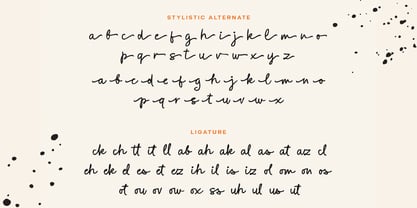 STYLISTIC ALTERNATE
a b c d e f g h i j k l m n o
p q r s t u v w x y z
a b c d e f g h i j k l m n o
p q r s t u v w x
LIGATURE
ck ch tt it ll ab ah ak al as at az cl
eh ek el es et ez ih il is iz ol om on os
ot ou ov ow ox ss uh ul us ut